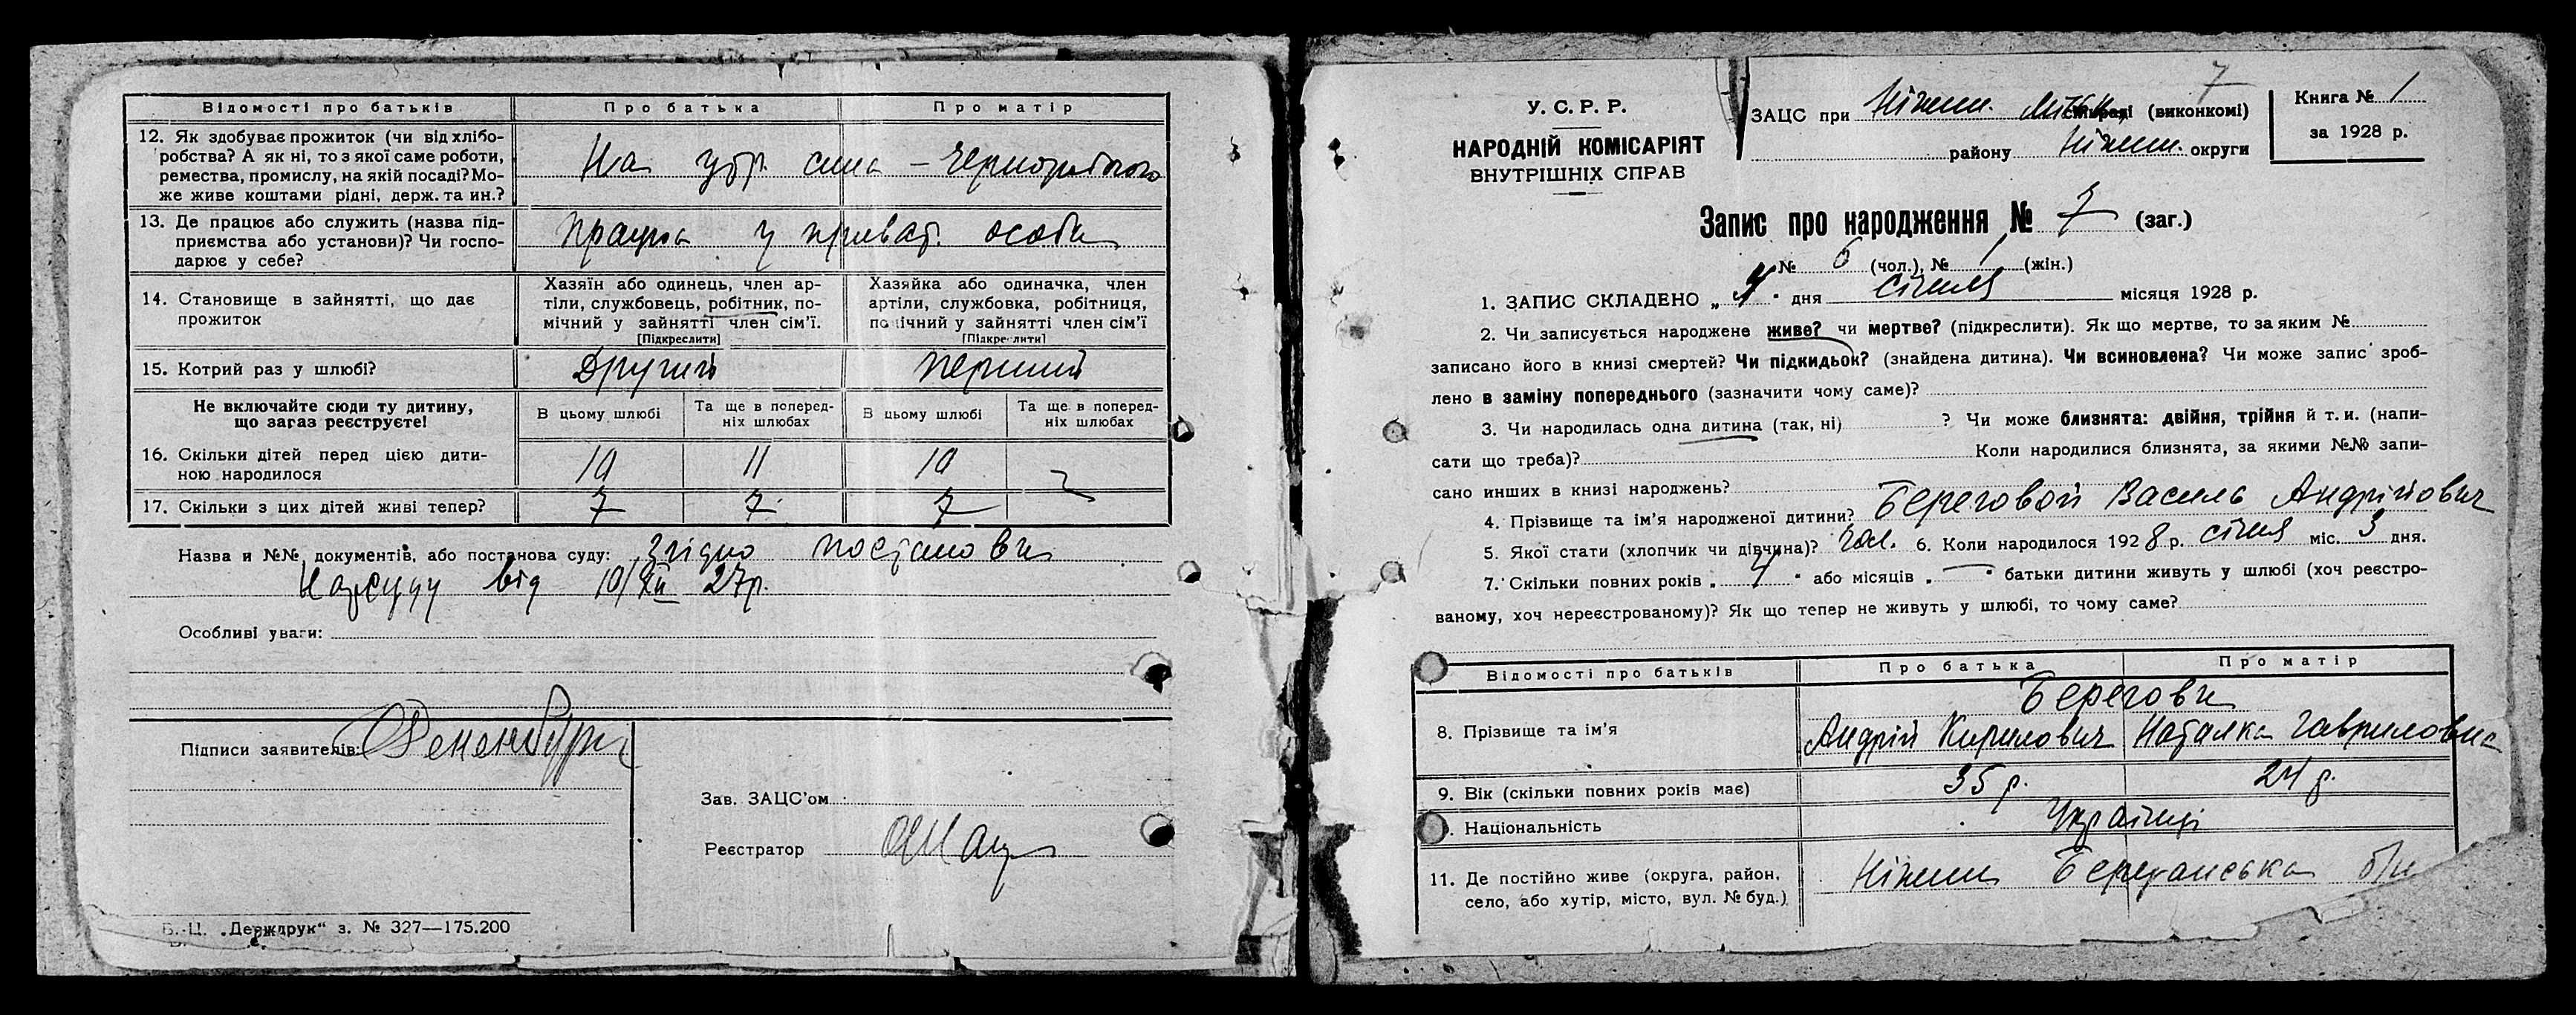 Відомості про батьків
Про батька
Про матір
12. Як здобуває прожиток (чи від хлібо-
робства? А як ні, то з якої саме роботи,
ремества, промислу, на якій посаді? Мо-
же живе коштами рідні, держ. та ин.?
На утр. сина – чернороб
13. Де працює або служить (назва під-
приємства або установи)? Чи госпо-
дарює у себе?
Працює у приват. особи
14. Становище в зайнятті, що дає
прожиток
Хазяїн або одинець, член ар-
тіли, службовець, робітник, по-
мічний у зайнятті член сім'ї.
[Підкреслити]
Хазяйка або одиначка, член
артіли, службовка, робітниця,
помічний у зайнятті член сім'ї
[Підкреслити]
15. Котрий раз у шлюбі?
Другий
перший
Не включайте сюди ту дитину,
що зараз реєструєте!
В цьому шлюбі
Та ще в поперед-
ніх шлюбах
В цьому шлюбі
Та ще в поперед-
ніх шлюбах
16. Скільки дітей перед цією дити-
ною народилося
11
17. Скільки з цих дітей живі тепер?
7
7
7
Назва и №№ документів, або постанова суду: Згідно постанови
Нарсуду від 10/XII 27р.
Особливі уваги:
Підписи заявителів:
Зав. ЗАЦС'ом
Реєстратор
В.-Ц. „Держдрук" з. № 327—175.200
7
У. С. Р. Р.
НАРОДНІЙ КОМІСАРІЯТ
ВНУТРІШНІХ СПРАВ
ЗАЦС при Ніжин. міськ. сільраді (виконкомі)
району Ніжин. округи
Книга № 1
за 1928 р.
Запис про народження № 7 (заг.)
№ 6 (чол.), № 1 (жін.)
1. ЗАПИС СКЛАДЕНО „4" дня січня місяця 1928 р.
2. Чи записується народжене живе? чи мертве? (підкреслити). Як що мертве, то за яким №
записано його в книзі смертей? Чи підкидьок? (знайдена дитина). Чи всиновлена? Чи може запис зроб-
лено в заміну попереднього (зазначити чому саме)?
3. Чи народилась одна дитина (так, ні) ? Чи може близнята: двійня, трійня й т. и. (напи-
сати що треба)? Коли народилися близнята, за якими №№ запи-
сано инших в книзі народжень?
4. Прізвище та ім'я народженої дитини? Береговой Василь Андрійович
5. Якої стати (хлопчик чи дівчина)? чол. 6. Коли народилося 1928 р. січня міс. 3 дня.
7. Скільки повних років „4" або місяців „—" батьки дитини живуть у шлюбі (хоч реєстро-
ваному, хоч нереєстрованому)? Як що тепер не живуть у шлюбі, то чому саме?
Відомості про батьків
Про батька
Про матір
8. Прізвище та ім'я
Берегови
Андрій Кирилович
Наталка Гавриловна
9. Вік (скільки повних років має)
35 р.
24 р.
Національність
Українці
11. Де постійно живе (округа, район,
село, або хутір, місто, вул. № буд.)
Ніжин